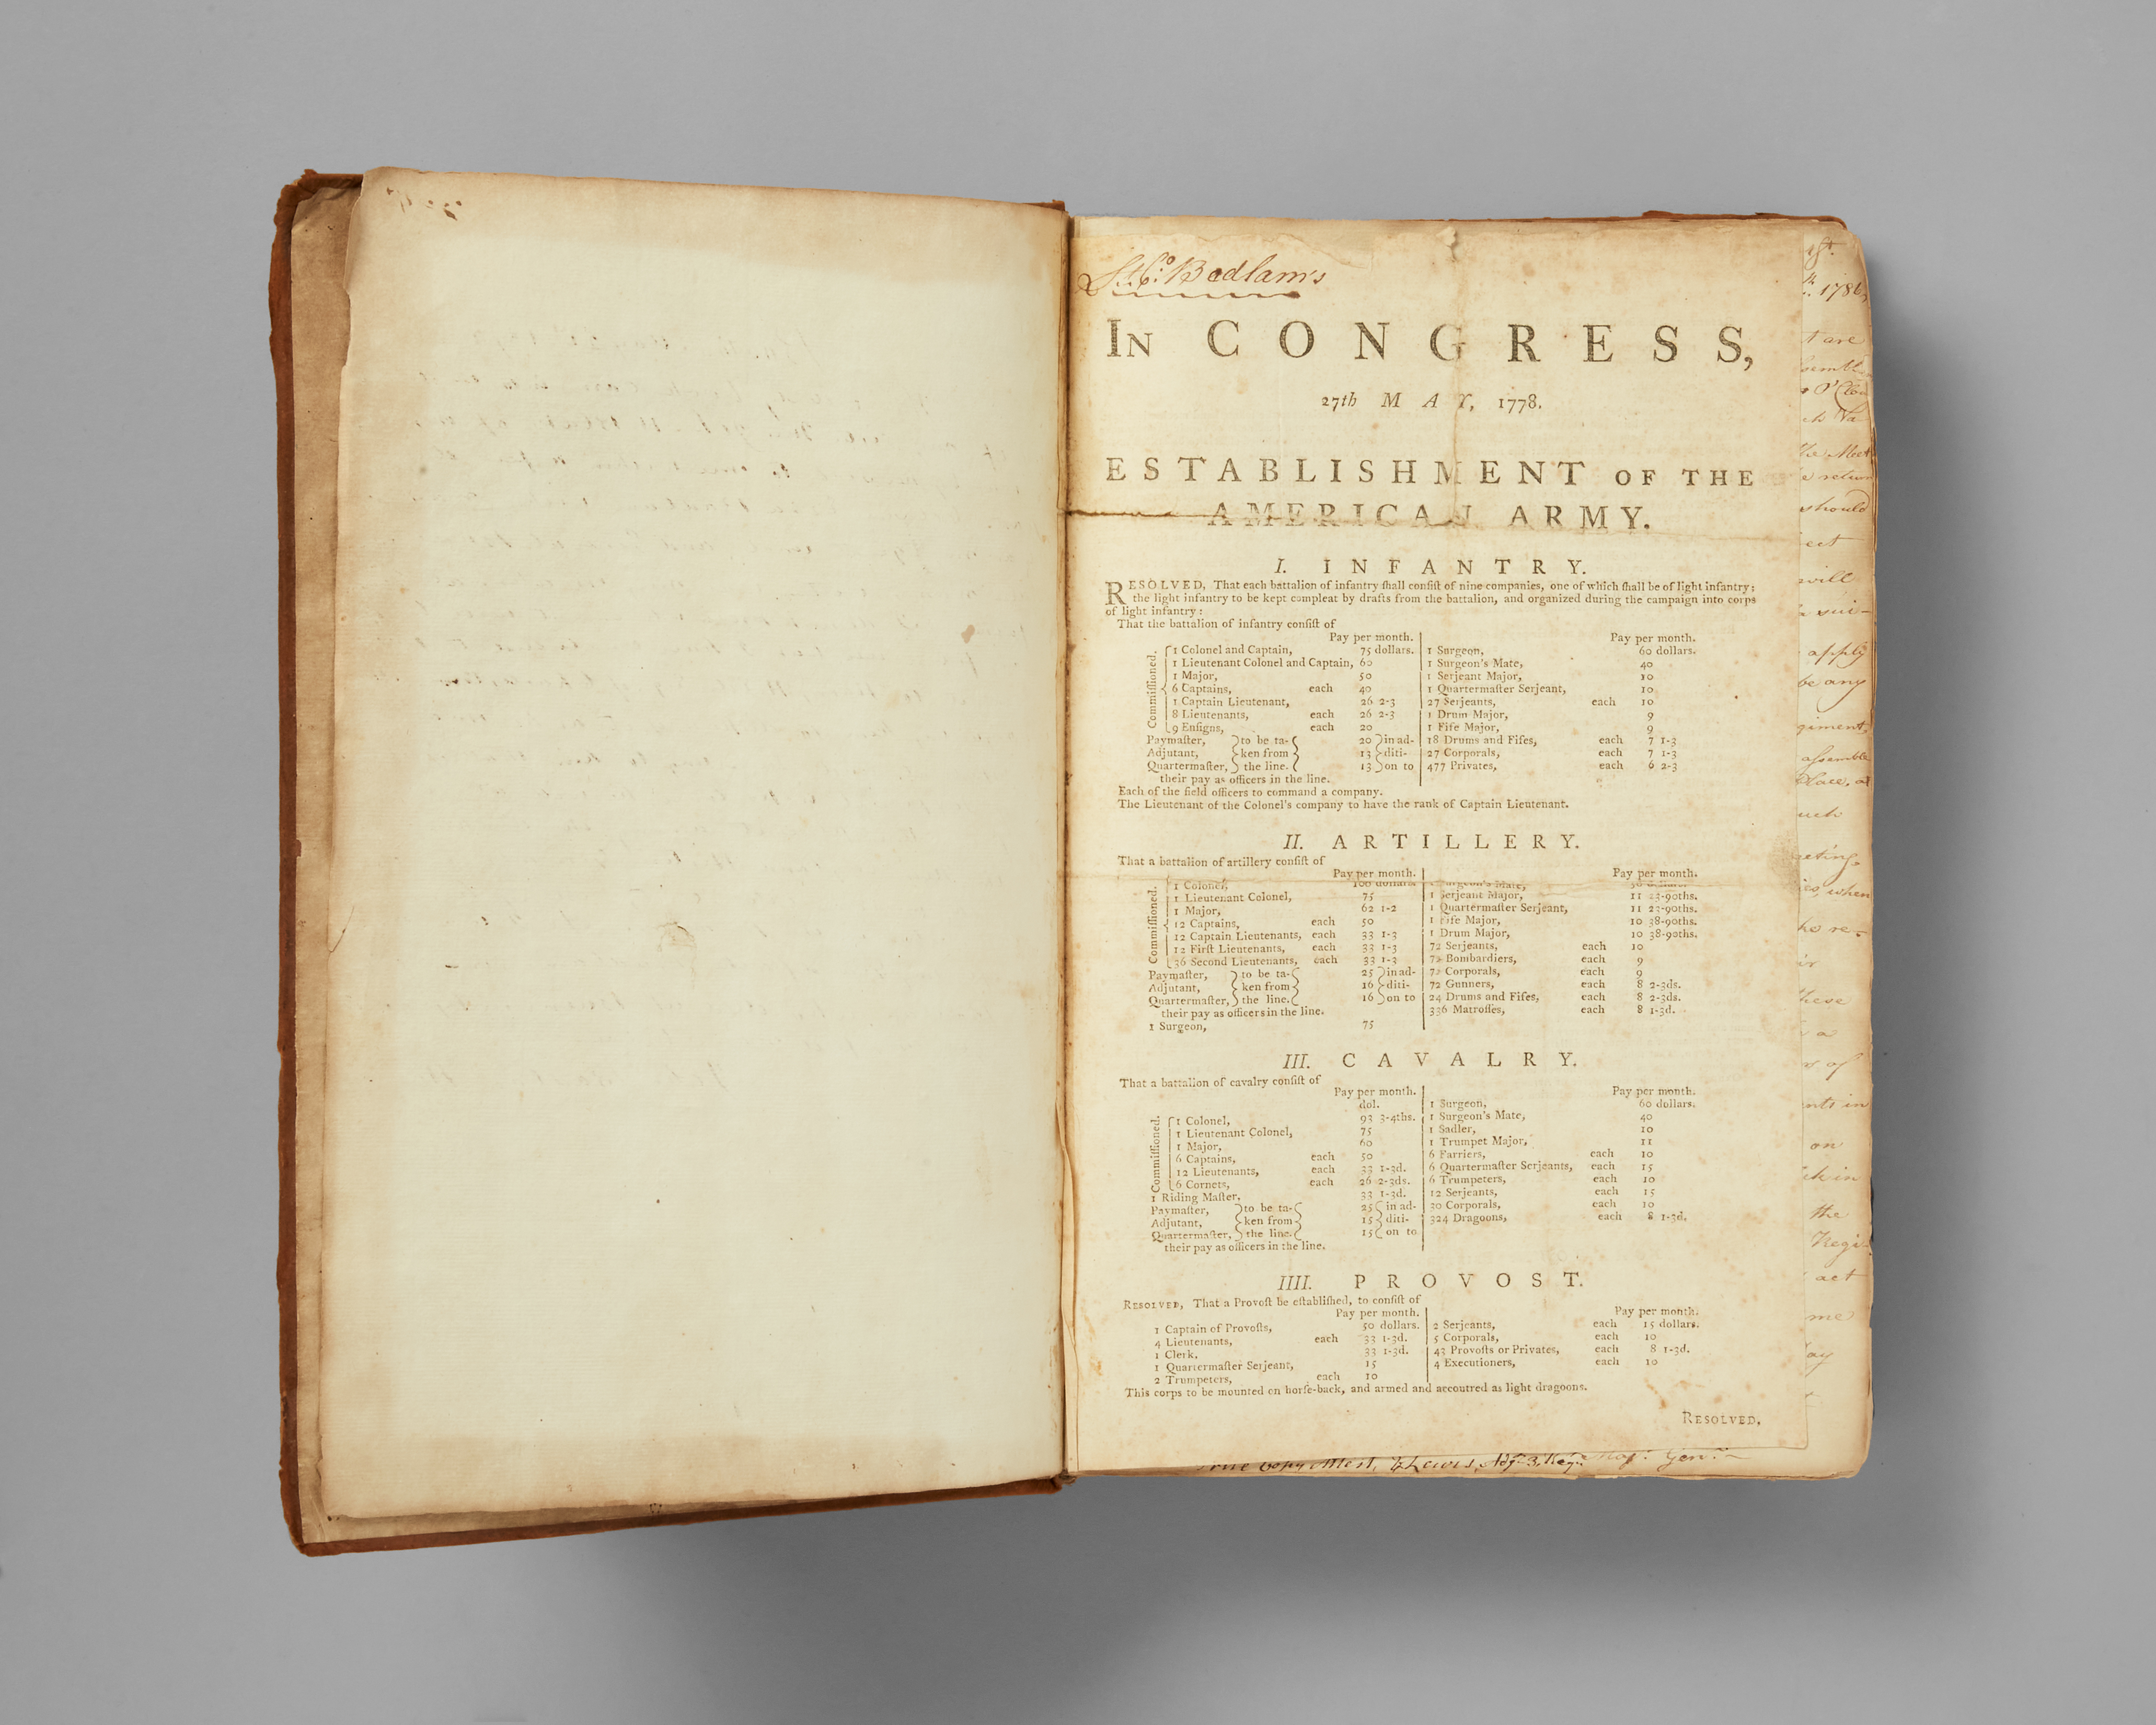 Badlam's
IN CONGRESS,
27th MAY, 1778.
ESTABLISHMENT OF THE
AMERICAN ARMY.
I. INFANTRY.
RESOLVED, That each battalion of infantry ſhall conſiſt of nine companies, one of which ſhall be of light infantry;
the light infantry to be kept compleat by drafts from the battalion, and organized during the campaign into corps
of light infantry:
That the battalion of infantry conſiſt of
Pay per month. Pay per month.
Commiſſioned.
1 Colonel and Captain, 75 dollars. 1 Surgeon, 60 dollars.
1 Lieutenant Colonel and Captain, 60 1 Surgeon's Mate, 40
1 Major, 50 1 Serjeant Major, 10
6 Captains, each 40 1 Quartermaſter Serjeant, 10
1 Captain Lieutenant, 26 2-3 27 Serjeants, each 10
8 Lieutenants, each 26 2-3 1 Drum Major, 9
9 Enſigns, each 20 1 Fife Major, 9
Paymaſter, to be ta- 20 in ad- 18 Drums and Fifes, each 7 1-3
Adjutant, ken from 13 diti- 27 Corporals, each 7 1-3
Quartermaſter, the line. 13 on to 477 Privates, each 6 2-3
their pay as officers in the line.
Each of the field officers to command a company.
The Lieutenant of the Colonel's company to have the rank of Captain Lieutenant.
II. ARTILLERY.
That a battalion of artillery conſiſt of
Pay per month. Pay per month.
Commiſſioned.
1 Colonel, 100 dollars 1 Surgeon's Mate,
1 Lieutenant Colonel, 75 1 Serjeant Major, 11 23-90ths.
1 Major, 62 1-2 1 Quartermaſter Serjeant, 11 23-90ths.
12 Captains, each 50 1 Fife Major, 10 38-90ths.
12 Captain Lieutenants, each 33 1-3 1 Drum Major, 10 38-90ths.
12 Firſt Lieutenants, each 33 1-3 72 Serjeants, each 10
36 Second Lieutenants, each 33 1-3 72 Bombardiers, each 9
Paymaſter, to be ta- 25 in ad- 72 Corporals, each 9
Adjutant, ken from 16 diti- 72 Gunners, each 8 2-3ds.
Quartermaſter, the line. 16 on to 24 Drums and Fifes, each 8 2-3ds.
their pay as officers in the line. 336 Matroſſes, each 8 1-3d.
1 Surgeon, 75
III. CAVALRY.
That a battalion of cavalry conſiſt of
Pay per month. Pay per month.
Commiſſioned.
dol. 1 Surgeon, 60 dollars.
1 Colonel, 93 3-4ths. 1 Surgeon's Mate, 40
1 Lieutenant Colonel, 75 1 Sadler, 10
1 Major, 60 1 Trumpet Major, 11
6 Captains, each 50 6 Farriers, each 10
12 Lieutenants, each 33 1-3d. 6 Quartermaſter Serjeants, each 15
6 Cornets, each 26 2-3ds. 6 Trumpeters, each 10
1 Riding Maſter, 33 1-3d. 12 Serjeants, each 15
Paymaſter, to be ta- 25 in ad- 30 Corporals, each 10
Adjutant, ken from 15 diti- 324 Dragoons, each 8 1-3d.
Quartermaſter, the line. 15 on to
their pay as officers in the line.
IIII. PROVOST.
RESOLVED, That a Provoſt be eſtabliſhed, to conſiſt of
Pay per month. Pay per month.
1 Captain of Provoſts, 50 dollars. 2 Serjeants, each 15 dollars.
4 Lieutenants, each 33 1-3d. 5 Corporals, each 10
1 Clerk, 33 1-3d. 43 Provoſts or Privates, each 8 1-3d.
1 Quartermaſter Serjeant, 15 4 Executioners, each 10
2 Trumpeters, each 10
This corps to be mounted on horſe-back, and armed and accoutred as light dragoons.
RESOLVED,
copy Lewis,
1786
are
return
should
will
apply
be any
assemble
when
these
a
of
in
on
the
act
me